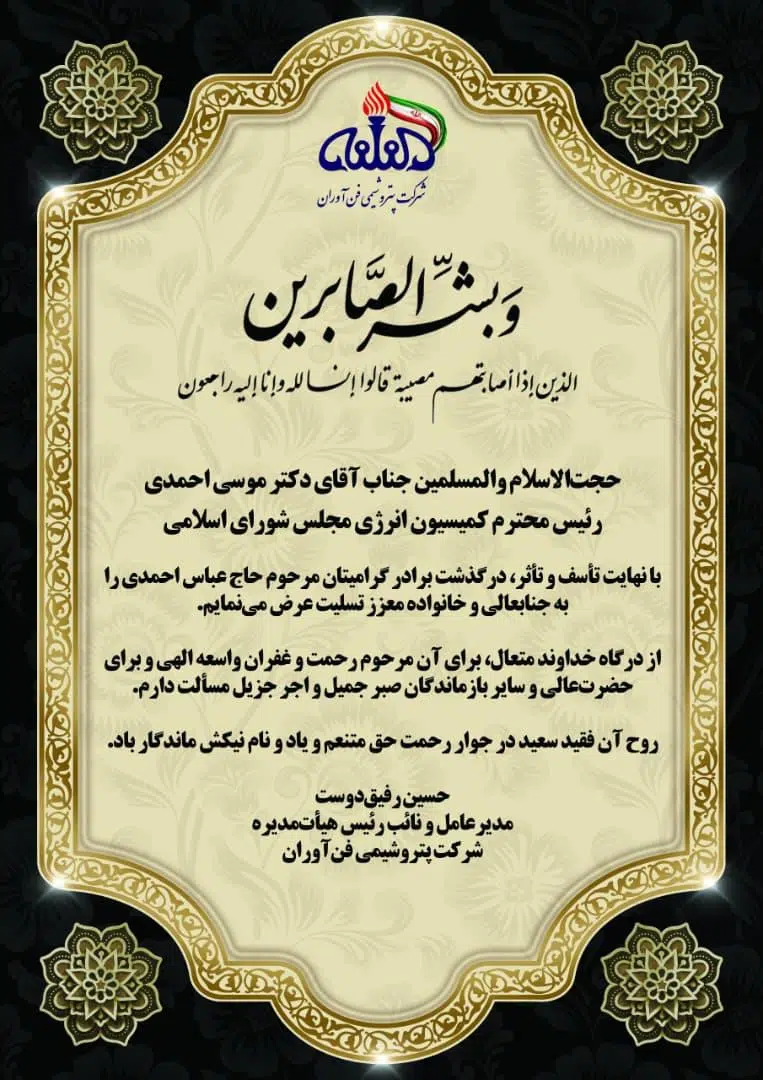 شرکت پتروشیمی فن‌آوران
وَبشِّر الصَّابرین
الذین إذا أصابتهم مصیبة قالوا إنا لله وإنا إلیه راجعون
حجت‌الاسلام والمسلمین جناب آقای دکتر موسی احمدی
رئیس محترم کمیسیون انرژی مجلس شورای اسلامی
با نهایت تأسف و تأثر، درگذشت برادر گرامیتان مرحوم حاج عباس احمدی را
به جنابعالی و خانواده معزز تسلیت عرض می‌نمایم.
از درگاه خداوند متعال، برای آن مرحوم رحمت و غفران واسعه الهی و برای
حضرت‌عالی و سایر بازماندگان صبر جمیل و اجر جزیل مسألت دارم.
روح آن فقید سعید در جوار رحمت حق متنعم و یاد و نام نیکش ماندگار باد.
حسین رفیق‌دوست
مدیرعامل و نائب رئیس هیأت‌مدیره
شرکت پتروشیمی فن‌آوران